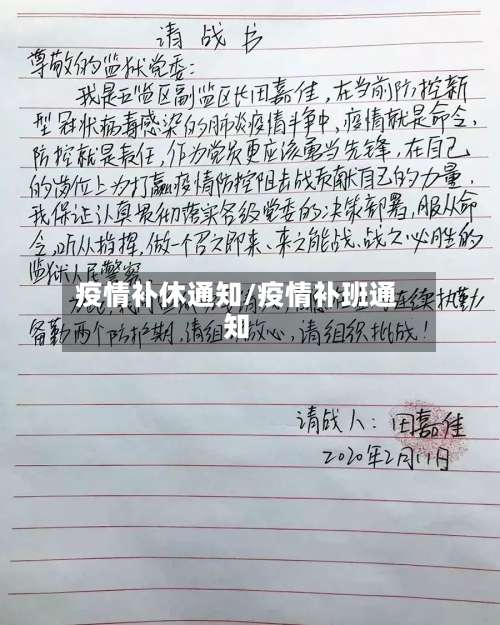 请战书
尊敬的监狱党委:
我是五监区副监区长田嘉佳,在当前防控新
型冠状病毒感染的肺炎疫情斗争中,疫情就是命令,
防控就是责任,作为党员更应该勇当先锋,在自己
的岗位上为打赢疫情防控阻击战贡献自己的力量,
我保证认真贯彻落实各级党委的决策部署,服从命
令,听从指挥,做一个召之即来、来之能战、战之必胜的
监狱人民警察
疫情补休通知/疫情补班通
知
连续执勤
备勤两个防护期,请组 放心,请组织批战!
请战人:田嘉佳
2020年2月11日